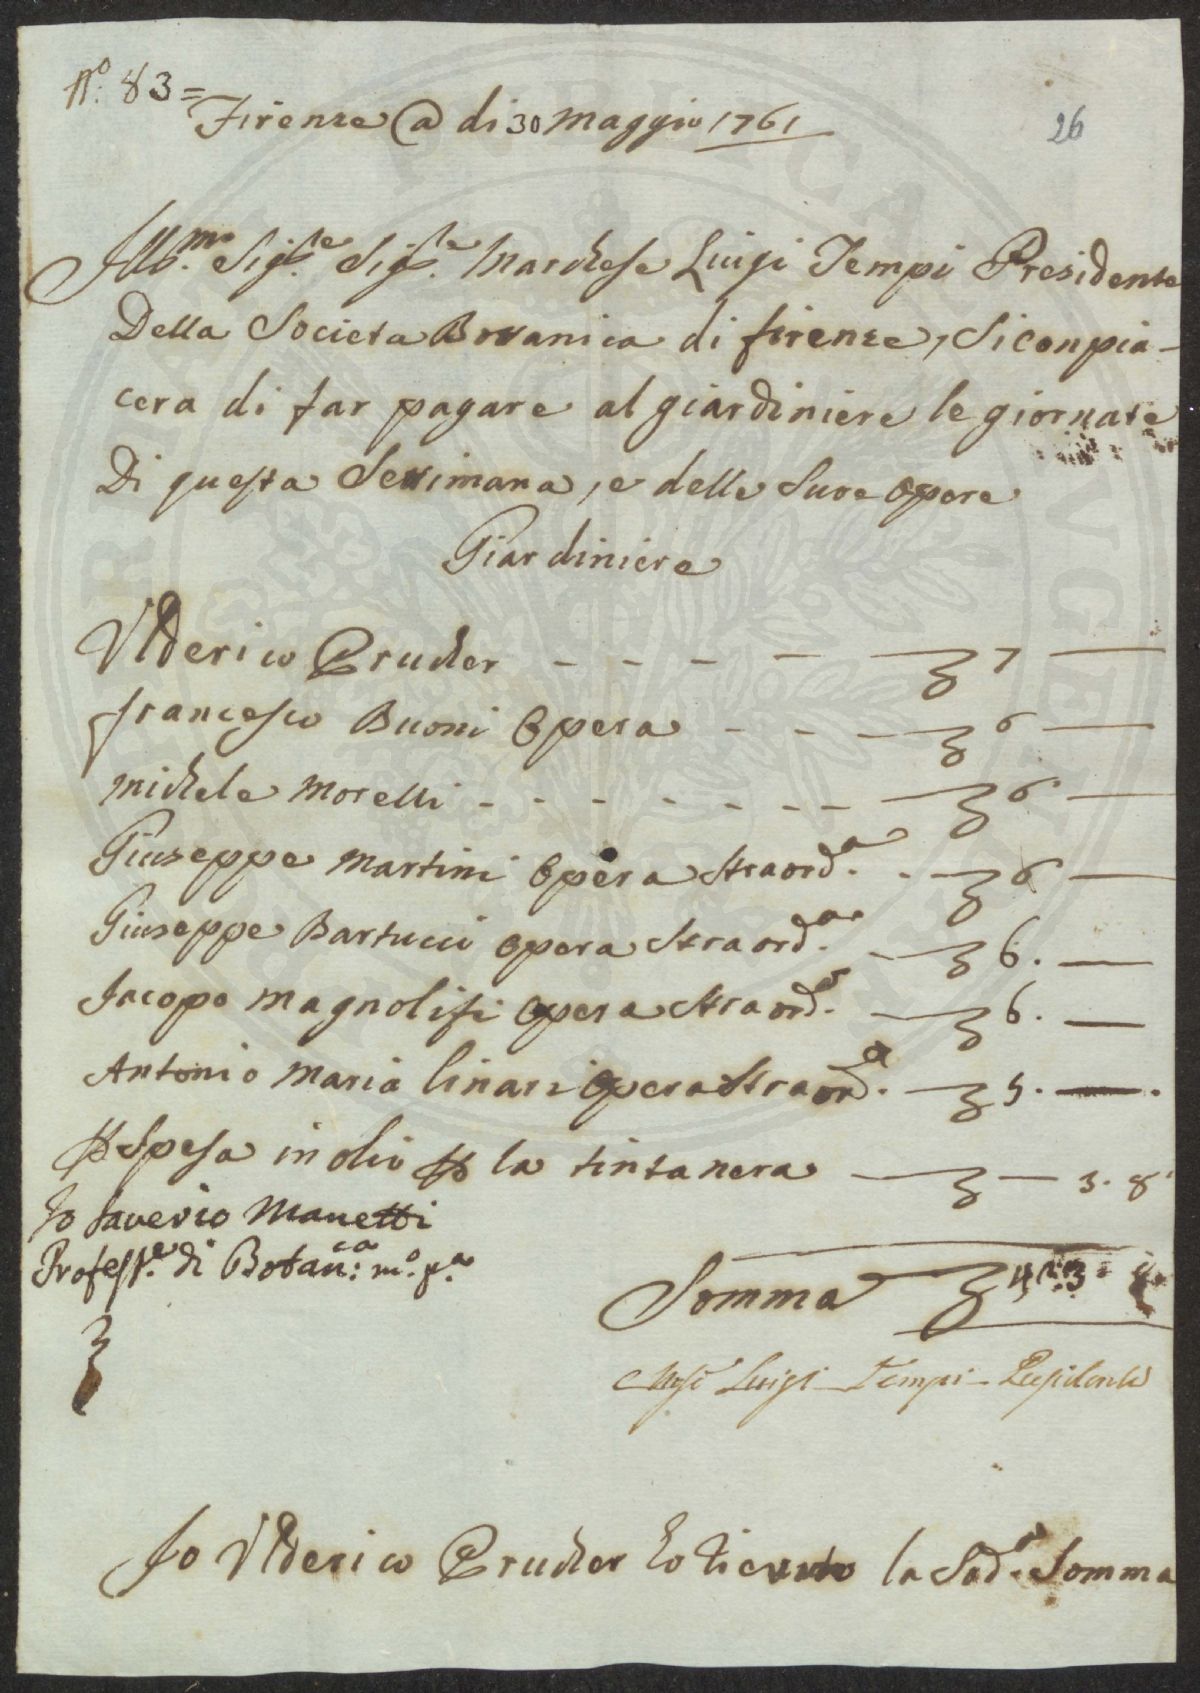 N.o 83=
26
Firenze @ di 30 Maggio 1761
Ill.mo Sig.re Sig.re Marchese Luigi Tempi Presidente
Della Societa Bottanica di firenze, Si conpia-
cera di far pagare al giardiniere le giornate
Di questa Settimana, e delle Sue opere
Giardiniere
Ulderico Prucher - - - - 7 —
francesco Buoni Opera - - - 6 —
Michele Morelli - - - - - - - - 6 —
Giuseppe Martini Opera Straord.a - 6 —
Giuseppe Bartucci opera Straord.a - 6. —
Jacopo Magnolfi opera Straord.a - 6. —
Antonio Maria linari opera Straord.a - 5. —.
Spesa in olio la tinta nera — — 3. 8
Io Saverio Manetti
Profess.e di Botan.ca m.o p.a
Somma
Luigi Tempi Presidente
Io Ulderico Prucher ho riceuto la Sud.a Somma